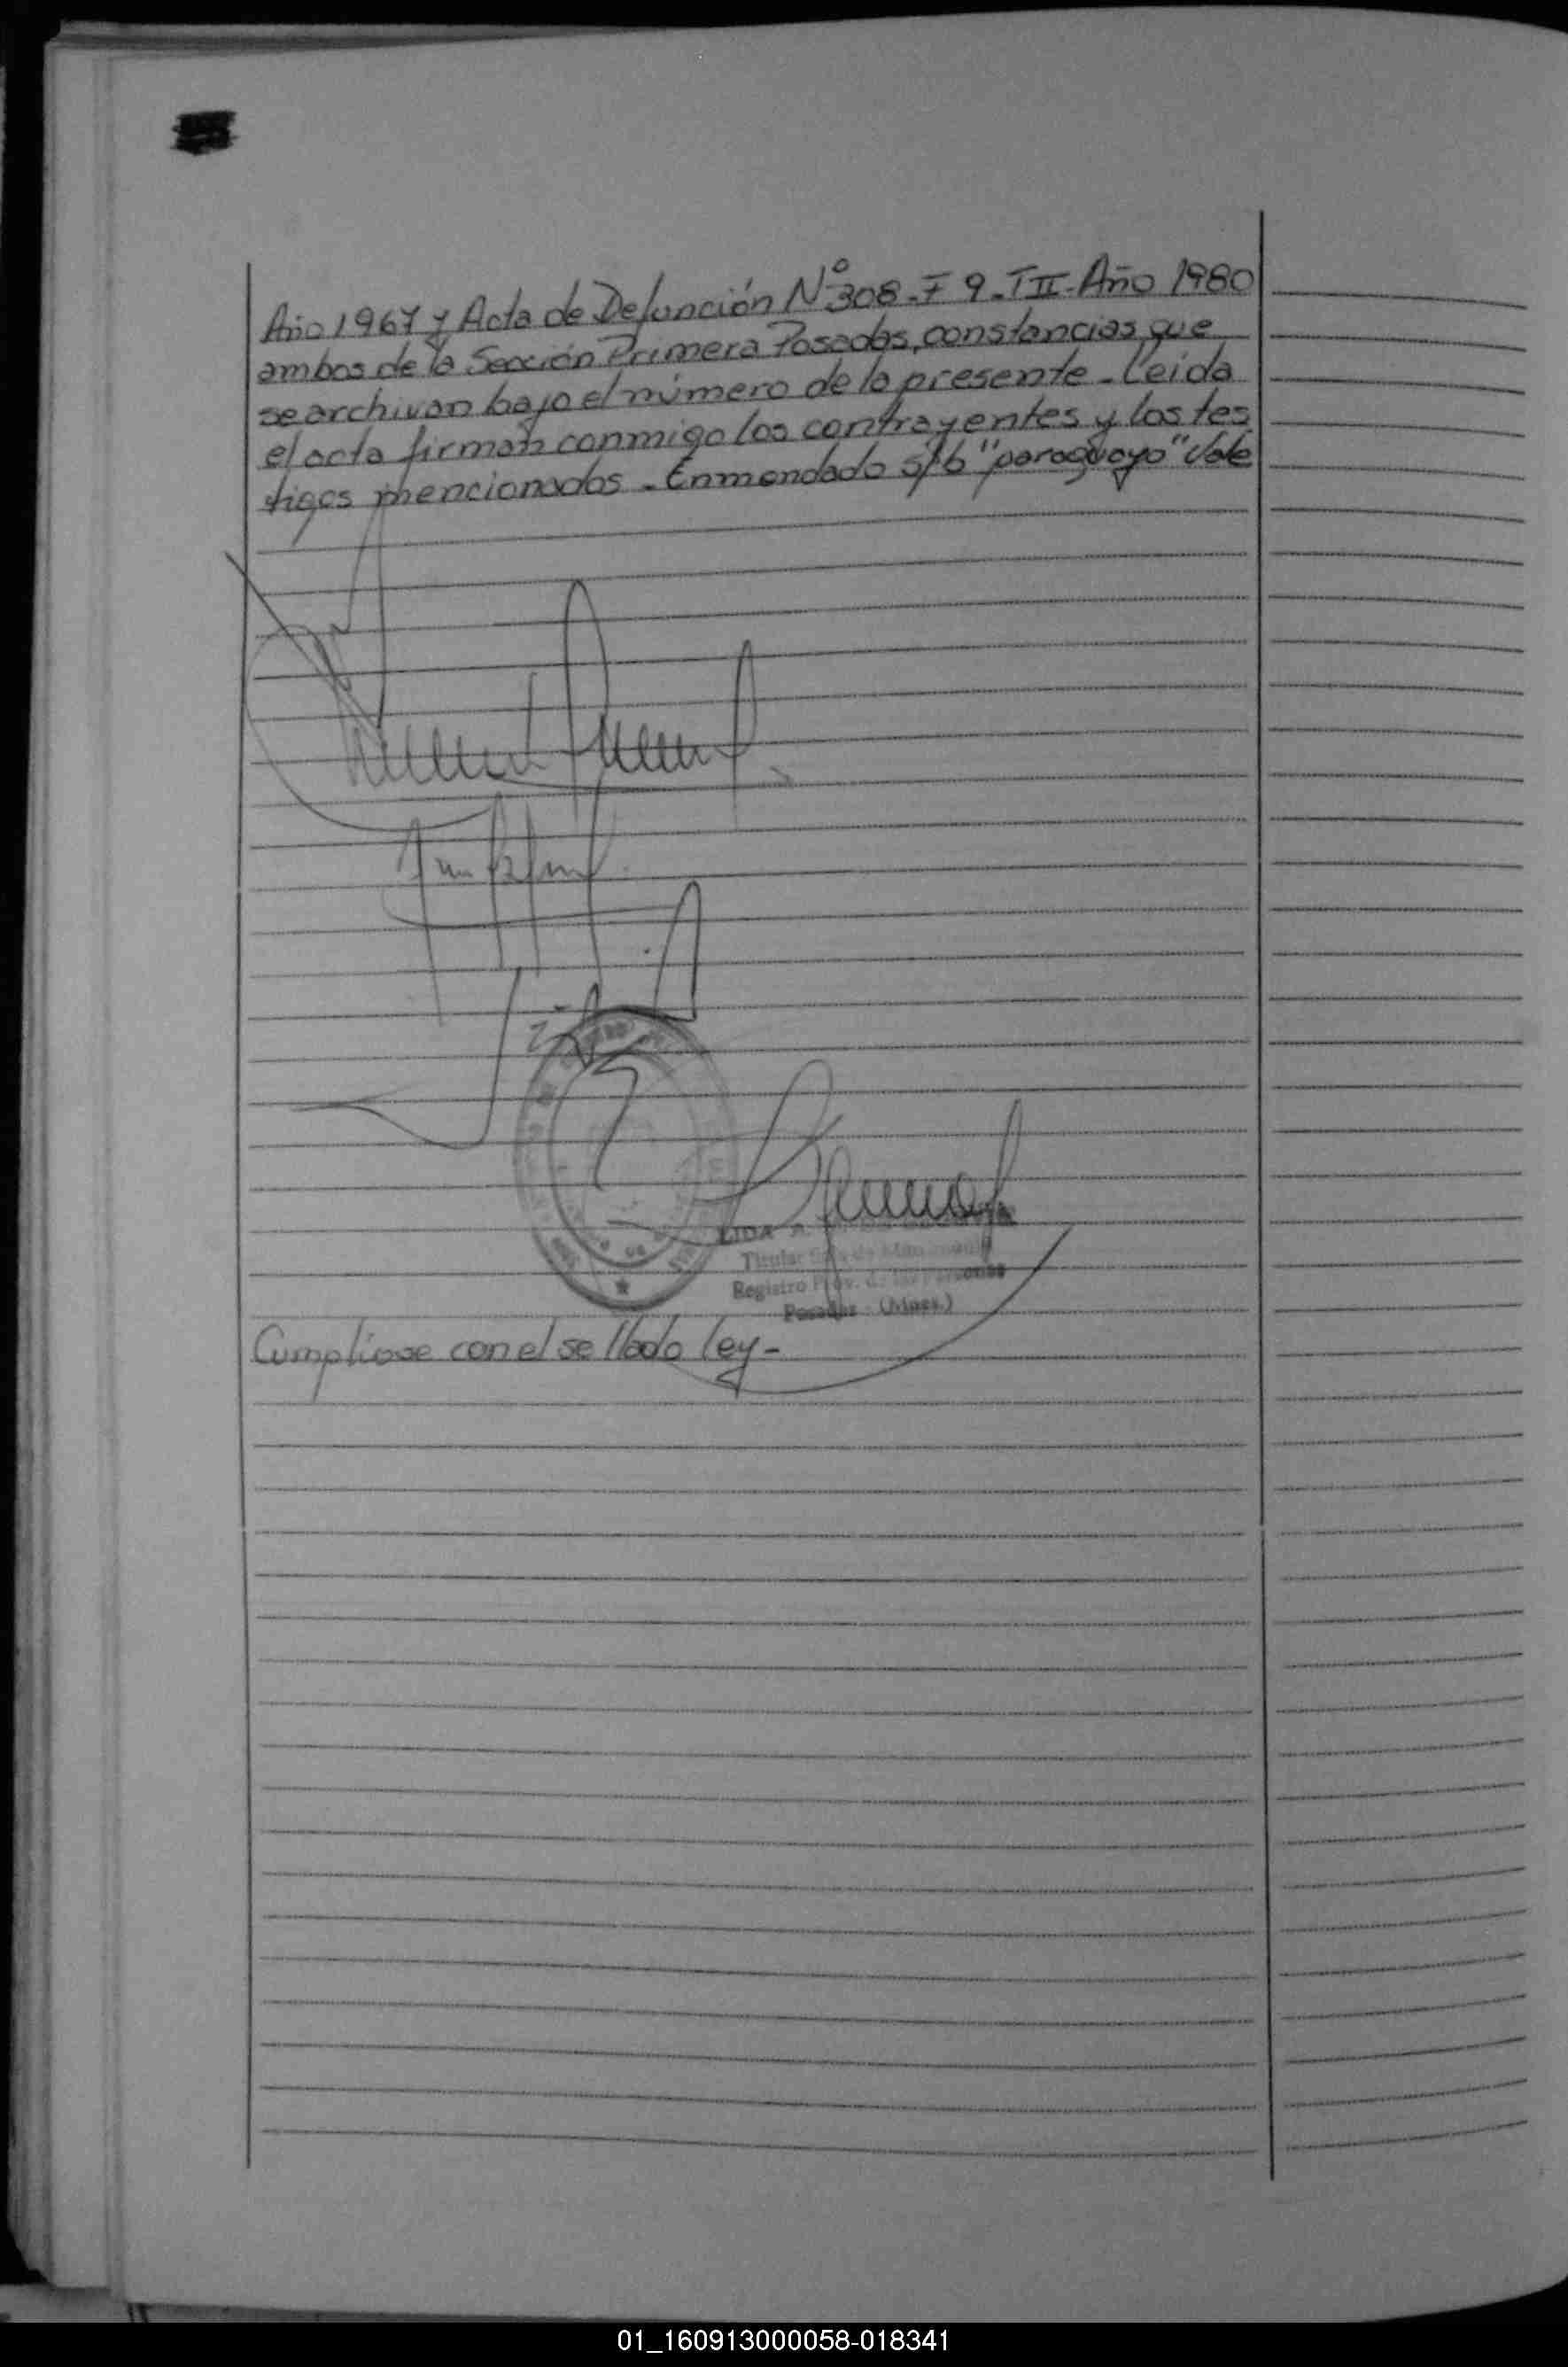 Año 1967 y Acta de Defunción Nº 308-F 9-T II-Año 1980
ambos de la Sección Primera Posadas, constancias que
se archivan bajo el número de la presente - Leida
el acta firman conmigo los contrayentes y los tes
tigos mencionados - Enmendado s/b "paraguayo" Vale
LIDA A.
Titular
Registro Prov. de las Personas
Posadas - (Mnes.)
Cumpliose con el sellado ley -
01_160913000058-018341